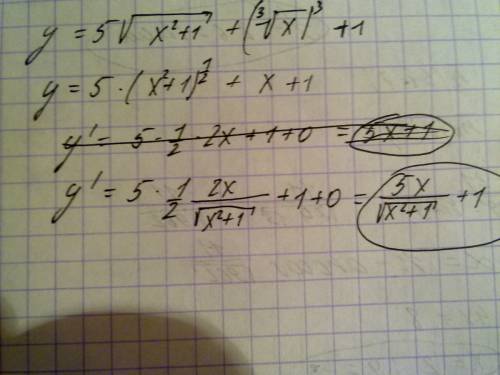 y = 5√(x²+1) + (∛x)³ + 1
y = 5·(x²+1)^½ + x + 1
y' = 5·1/2·2x+1+0 = 5x+1
y' = 5·1/2 2x/√(x²+1) +1+0 = 5x/√(x²+1) +1